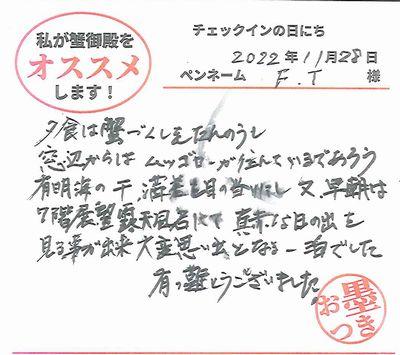 私が蟹御殿を
オススメ
します！
チェックインの日にち
2022年11月28日
ペンネーム F.T 様
夕食は蟹づくしをたんのうし
窓辺からはムツゴローが住んでいるであろう
有明海の干、満差を目の当りにし又、早朝は
7階展望露天風呂にて真赤な日の出を
見る事が出来大変思い出となる一泊でした
有難とうございました。
お墨つき